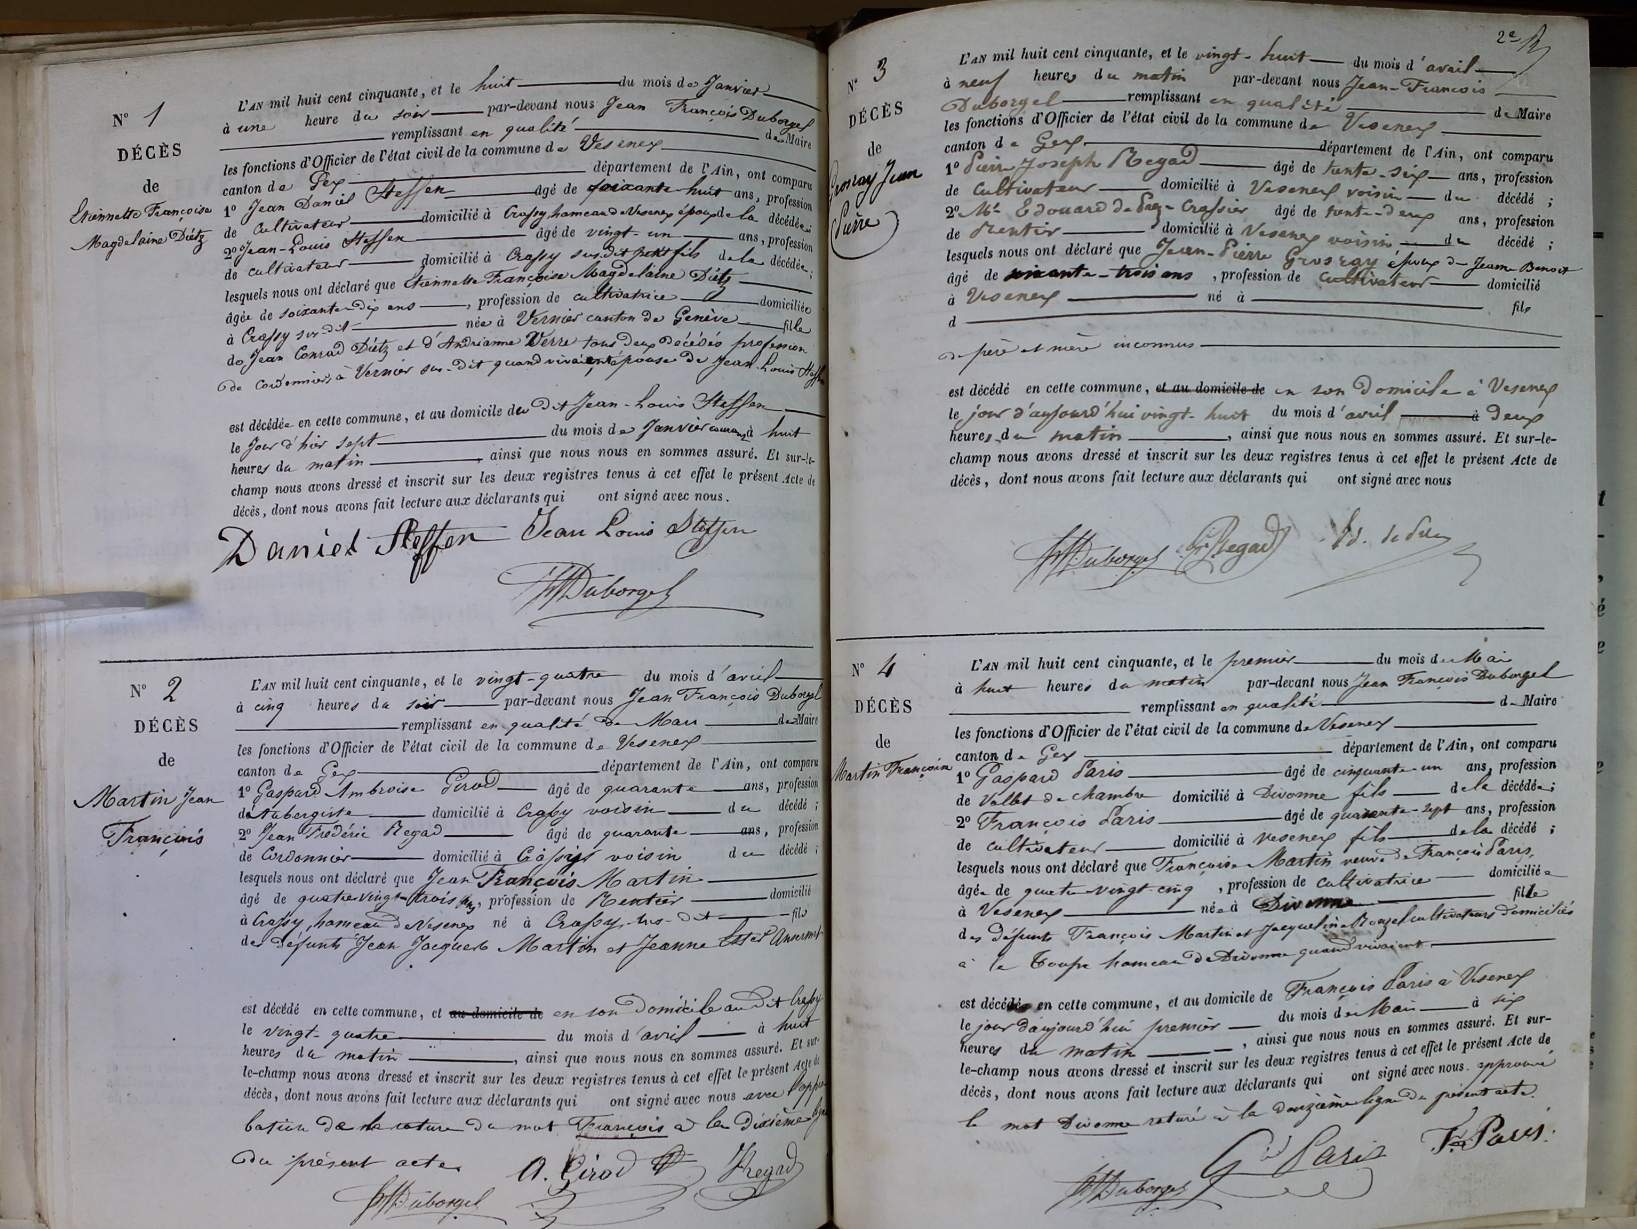 N° 1
DÉCÈS
de
Etiennette Françoise
Magdelaine Diétz
L'AN mil huit cent cinquante, et le huit du mois de Janvier
à une heure du soir par-devant nous Jean François Duborgel
remplissant en qualité de Maire
les fonctions d'Officier de l'état civil de la commune de Vesenex
canton de Gex département de l'Ain, ont comparu
1° Jean Daniel Steffen âgé de soixante-huit ans, profession
de Cultivateur domicilié à Crassy hameau de Vesenex époux de la décédée;
2° Jean-Louis Steffen âgé de vingt-un ans, profession
de cultivateur domicilié à Crassy sus-dit petit fils de la décédée;
lesquels nous ont déclaré que Etiennette Françoise Magdelaine Diétz
âgée de soixante-dix ans, profession de cultivatrice domiciliée
à Crassy sus-dit née à Vernier canton de Genève fille
de Jean Conrad Diétz et d'Andrianne Verre tous deux décédés profession
de Cordonnier, à Vernier sus-dit quand vivaient épouse de Jean-Louis Steffen
est décédée en cette commune, et au domicile du dit Jean-Louis Steffen
le Jour d'hier sept du mois de Janvier courant à huit
heures du matin, ainsi que nous nous en sommes assuré. Et sur-le-
champ nous avons dressé et inscrit sur les deux registres tenus à cet effet le présent Acte de
décès, dont nous avons fait lecture aux déclarants qui ont signé avec nous.
Daniel Steffen Jean Louis Steffen
Duborgel
N° 2
DÉCÈS
de
Martin Jean
François
L'AN mil huit cent cinquante, et le vingt-quatre du mois d'avril
à cinq heures du soir par-devant nous Jean François Duborgel
remplissant en qualité de Maire de Maire
les fonctions d'Officier de l'état civil de la commune de Vesenex
canton de Gex département de l'Ain, ont comparu
1° Gaspard Ambroise Girod âgé de quarante ans, profession
d'Aubergiste domicilié à Crassy voisin du décédé;
2° Jean Frédéric Regad âgé de quarante ans, profession
de Cordonnier domicilié à Crassy voisin du décédé;
lesquels nous ont déclaré que Jean François Martin
âgé de quatre vingt-trois ans, profession de Rentier domicilié
à Crassy hameau de Vesenex né à Crassy sus-dit fils
des défunts Jean Jacques Martin et Jeanne Ester Ansermet
est décédé en cette commune, et au domicile de en son domicile au dit Crassy
le vingt-quatre du mois d'avril à huit
heures du matin, ainsi que nous nous en sommes assuré. Et sur-
le-champ nous avons dressé et inscrit sur les deux registres tenus à cet effet le présent Acte de
décès, dont nous avons fait lecture aux déclarants qui ont signé avec nous avec l'appro
bation de la rature du mot François à la dixième ligne
du présent acte.
A. Girod Regad
Duborgel
2e
N° 3
DÉCÈS
de
Grosray Jean
Pierre
L'AN mil huit cent cinquante, et le vingt-huit du mois d'avril
à neuf heures du matin par-devant nous Jean-François
Duborgel remplissant en qualité de Maire
les fonctions d'Officier de l'état civil de la commune de Vesenex
canton de Gex département de l'Ain, ont comparu
1° Pierre Joseph Regad âgé de trente-six ans, profession
de Cultivateur domicilié à Vesenex voisin du décédé;
2° Mr Edouard de Prez-Crassier âgé de trente-deux ans, profession
de Rentier domicilié à Vesenex voisin du décédé;
lesquels nous ont déclaré que Jean-Pierre Grosray époux de Jeanne Benoit
âgé de soixante-trois ans, profession de Cultivateur domicilié
à Vesenex né à fils
d
de père et mère inconnus
est décédé en cette commune, et au domicile de en son Domicile à Vesenex
le jour d'aujourd'hui vingt-huit du mois d'avril à deux
heures du matin, ainsi que nous nous en sommes assuré. Et sur-le-
champ nous avons dressé et inscrit sur les deux registres tenus à cet effet le présent Acte de
décès, dont nous avons fait lecture aux déclarants qui ont signé avec nous
Duborgel Regad
N° 4
DÉCÈS
de
Martin Françoise
L'AN mil huit cent cinquante, et le premier du mois de Mai
à huit heures du matin par-devant nous Jean François Duborgel
remplissant en qualité de Maire
les fonctions d'Officier de l'état civil de la commune de Vesenex
canton de Gex département de l'Ain, ont comparu
1° Gaspard Paris âgé de cinquante-un ans, profession
de Vallet de chambre domicilié à Divonne fils de la décédée;
2° François Paris âgé de quarante-sept ans, profession
de cultivateur domicilié à Vesenex fils de la décédé;
lesquels nous ont déclaré que Françoise Martin veuve de François Paris,
âgée de quatre vingt cinq, profession de cultivatrice domiciliée
à Vesenex née à Divonne fille
des défunts François Martin et Jacqueline Rouzet cultivateurs domiciliés
à la Coupe hameau de Divonne quand vivaient
est décédée en cette commune, et au domicile de François Paris à Vesenex
le jour d'aujourd'hui premier du mois de Mai à six
heures du matin, ainsi que nous nous en sommes assuré. Et sur-
le-champ nous avons dressé et inscrit sur les deux registres tenus à cet effet le présent Acte de
décès, dont nous avons fait lecture aux déclarants qui ont signé avec nous. approuvé
le mot Divonne raturé à la douzième ligne du présent acte.
Gd Paris Fs Paris
Duborgel